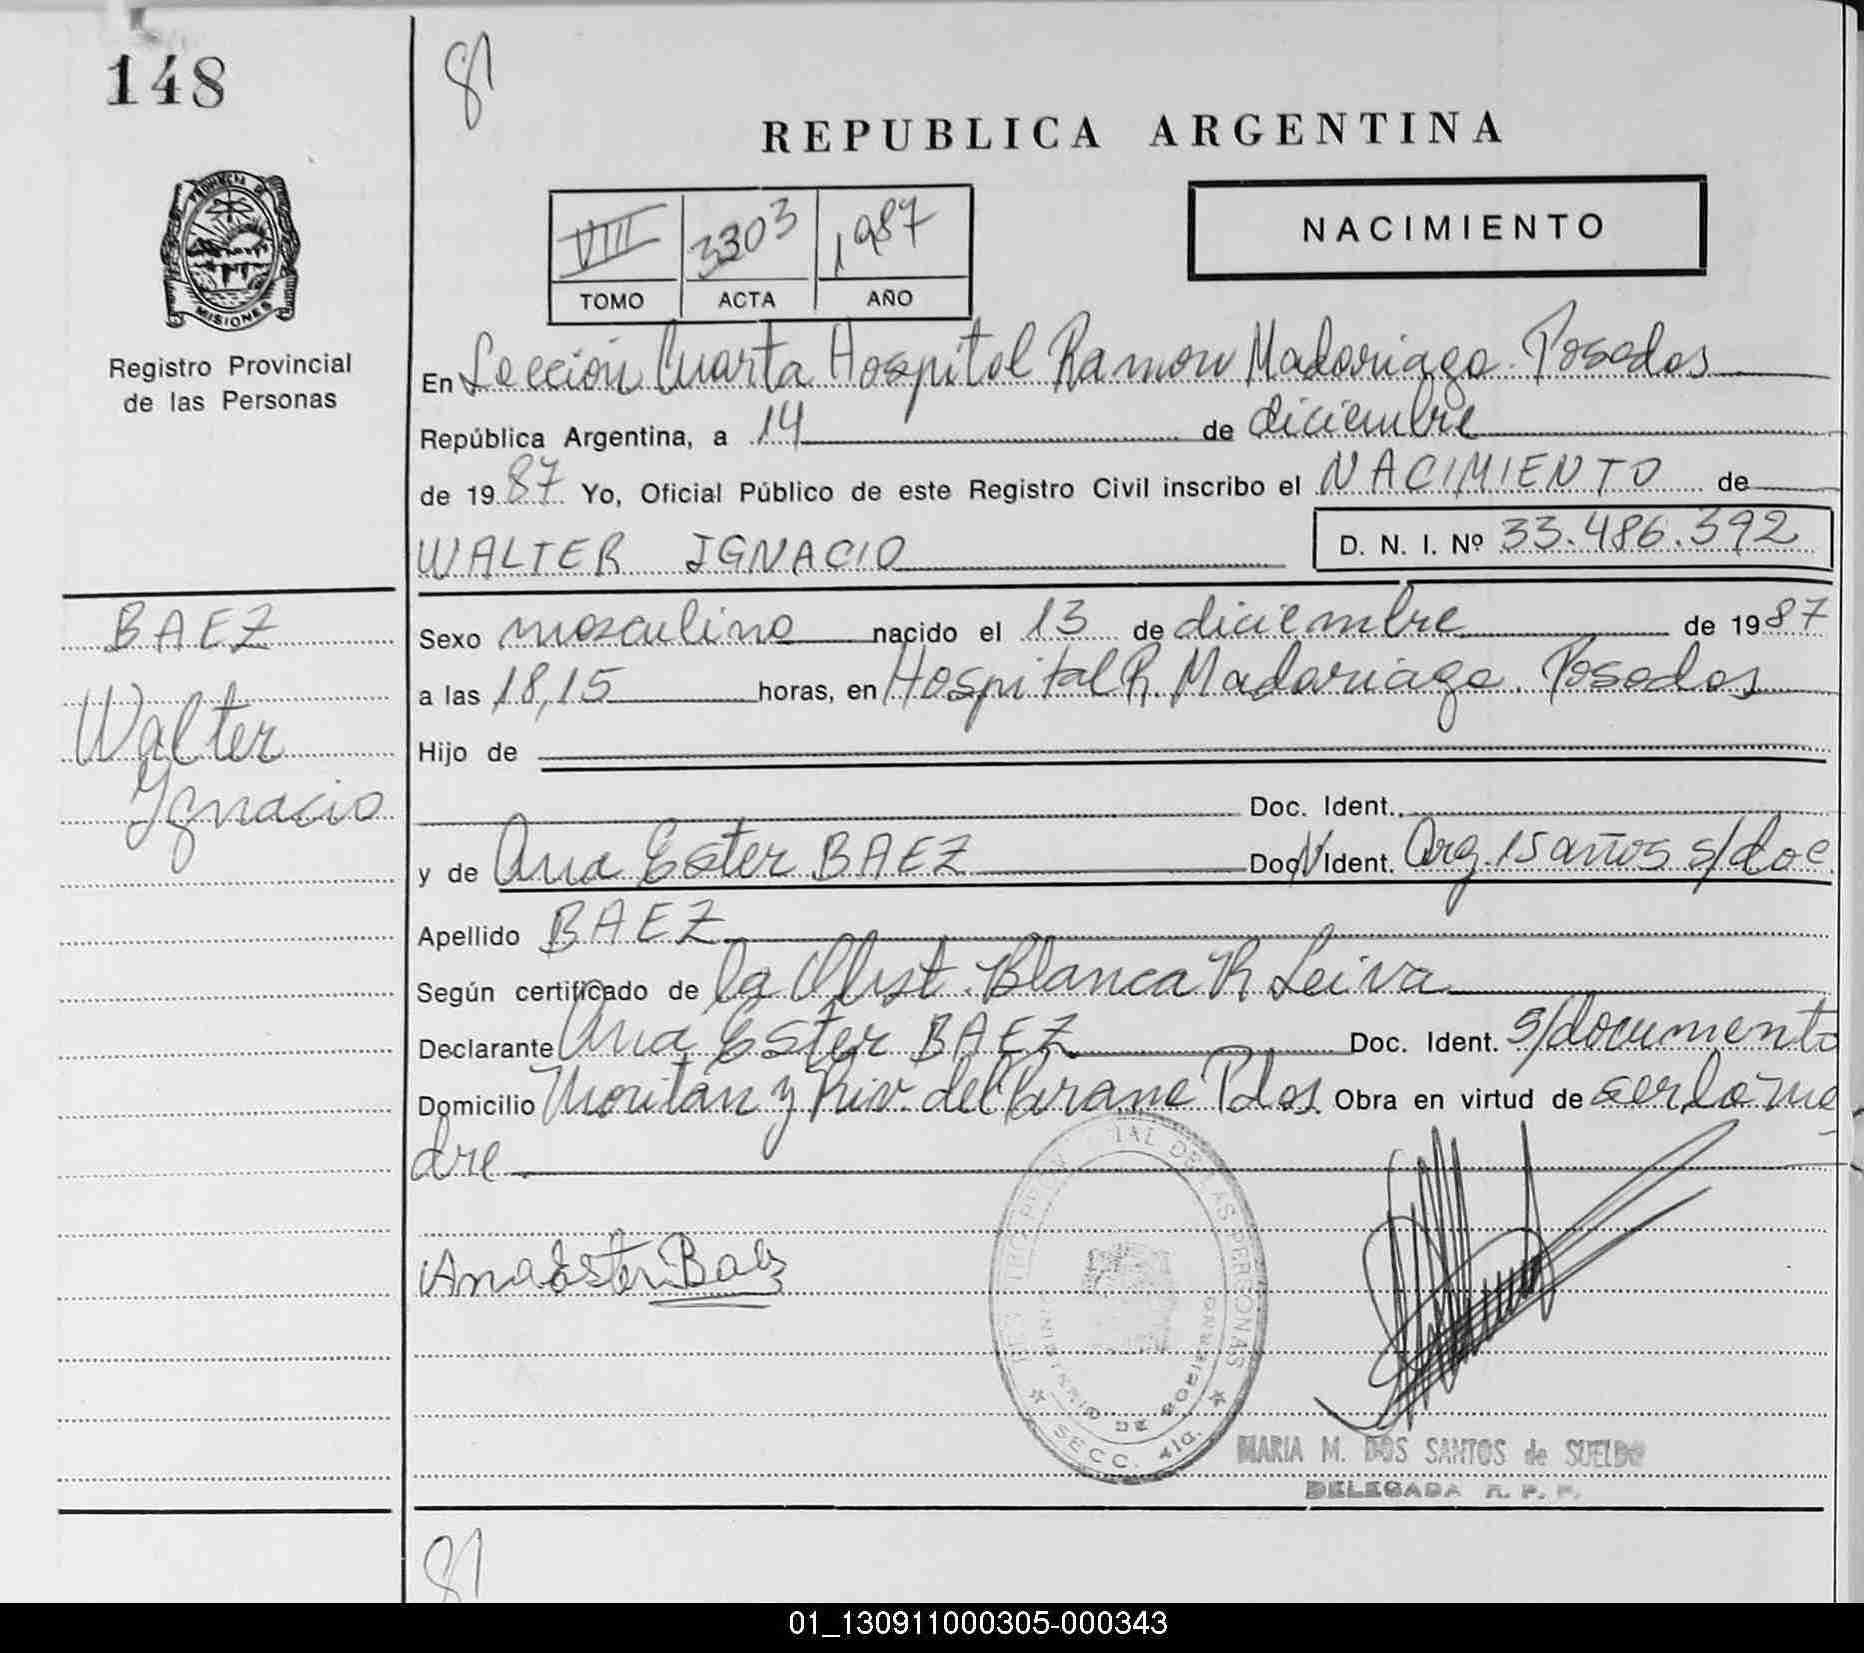 148
81
REPUBLICA ARGENTINA
PROVINCIA DE
MISIONES
Registro Provincial
de las Personas
VIII 3303 1987
TOMO ACTA AÑO
NACIMIENTO
En Sección Cuarta Hospital Ramon Madariaga. Posadas
República Argentina, a 14 de diciembre
de 1987 Yo, Oficial Público de este Registro Civil inscribo el NACIMIENTO de
WALTER IGNACIO D. N. I. Nº 33.486.392
BAEZ
Walter
Ignacio
Sexo masculino nacido el 13 de diciembre de 1987
a las 18,15 horas, en Hospital R. Madariaga. Posadas
Hijo de
Doc. Ident.
y de Ana Ester BAEZ Doc. Ident. Arg. 15 años s/doc
Apellido BAEZ
Según certificado de la Obst. Blanca R Leiva
Declarante Ana Ester BAEZ Doc. Ident. s/documento
Domicilio y Riv. del Pdas. Obra en virtud de ser la ma
dre
Ana Ester Baez
DE LAS PERSONAS
MINISTERIO DE GOBIERNO
SECC. 4ta.
MARIA M. DOS SANTOS de SUELDO
DELEGADA R. P. P.
81
01_130911000305-000343